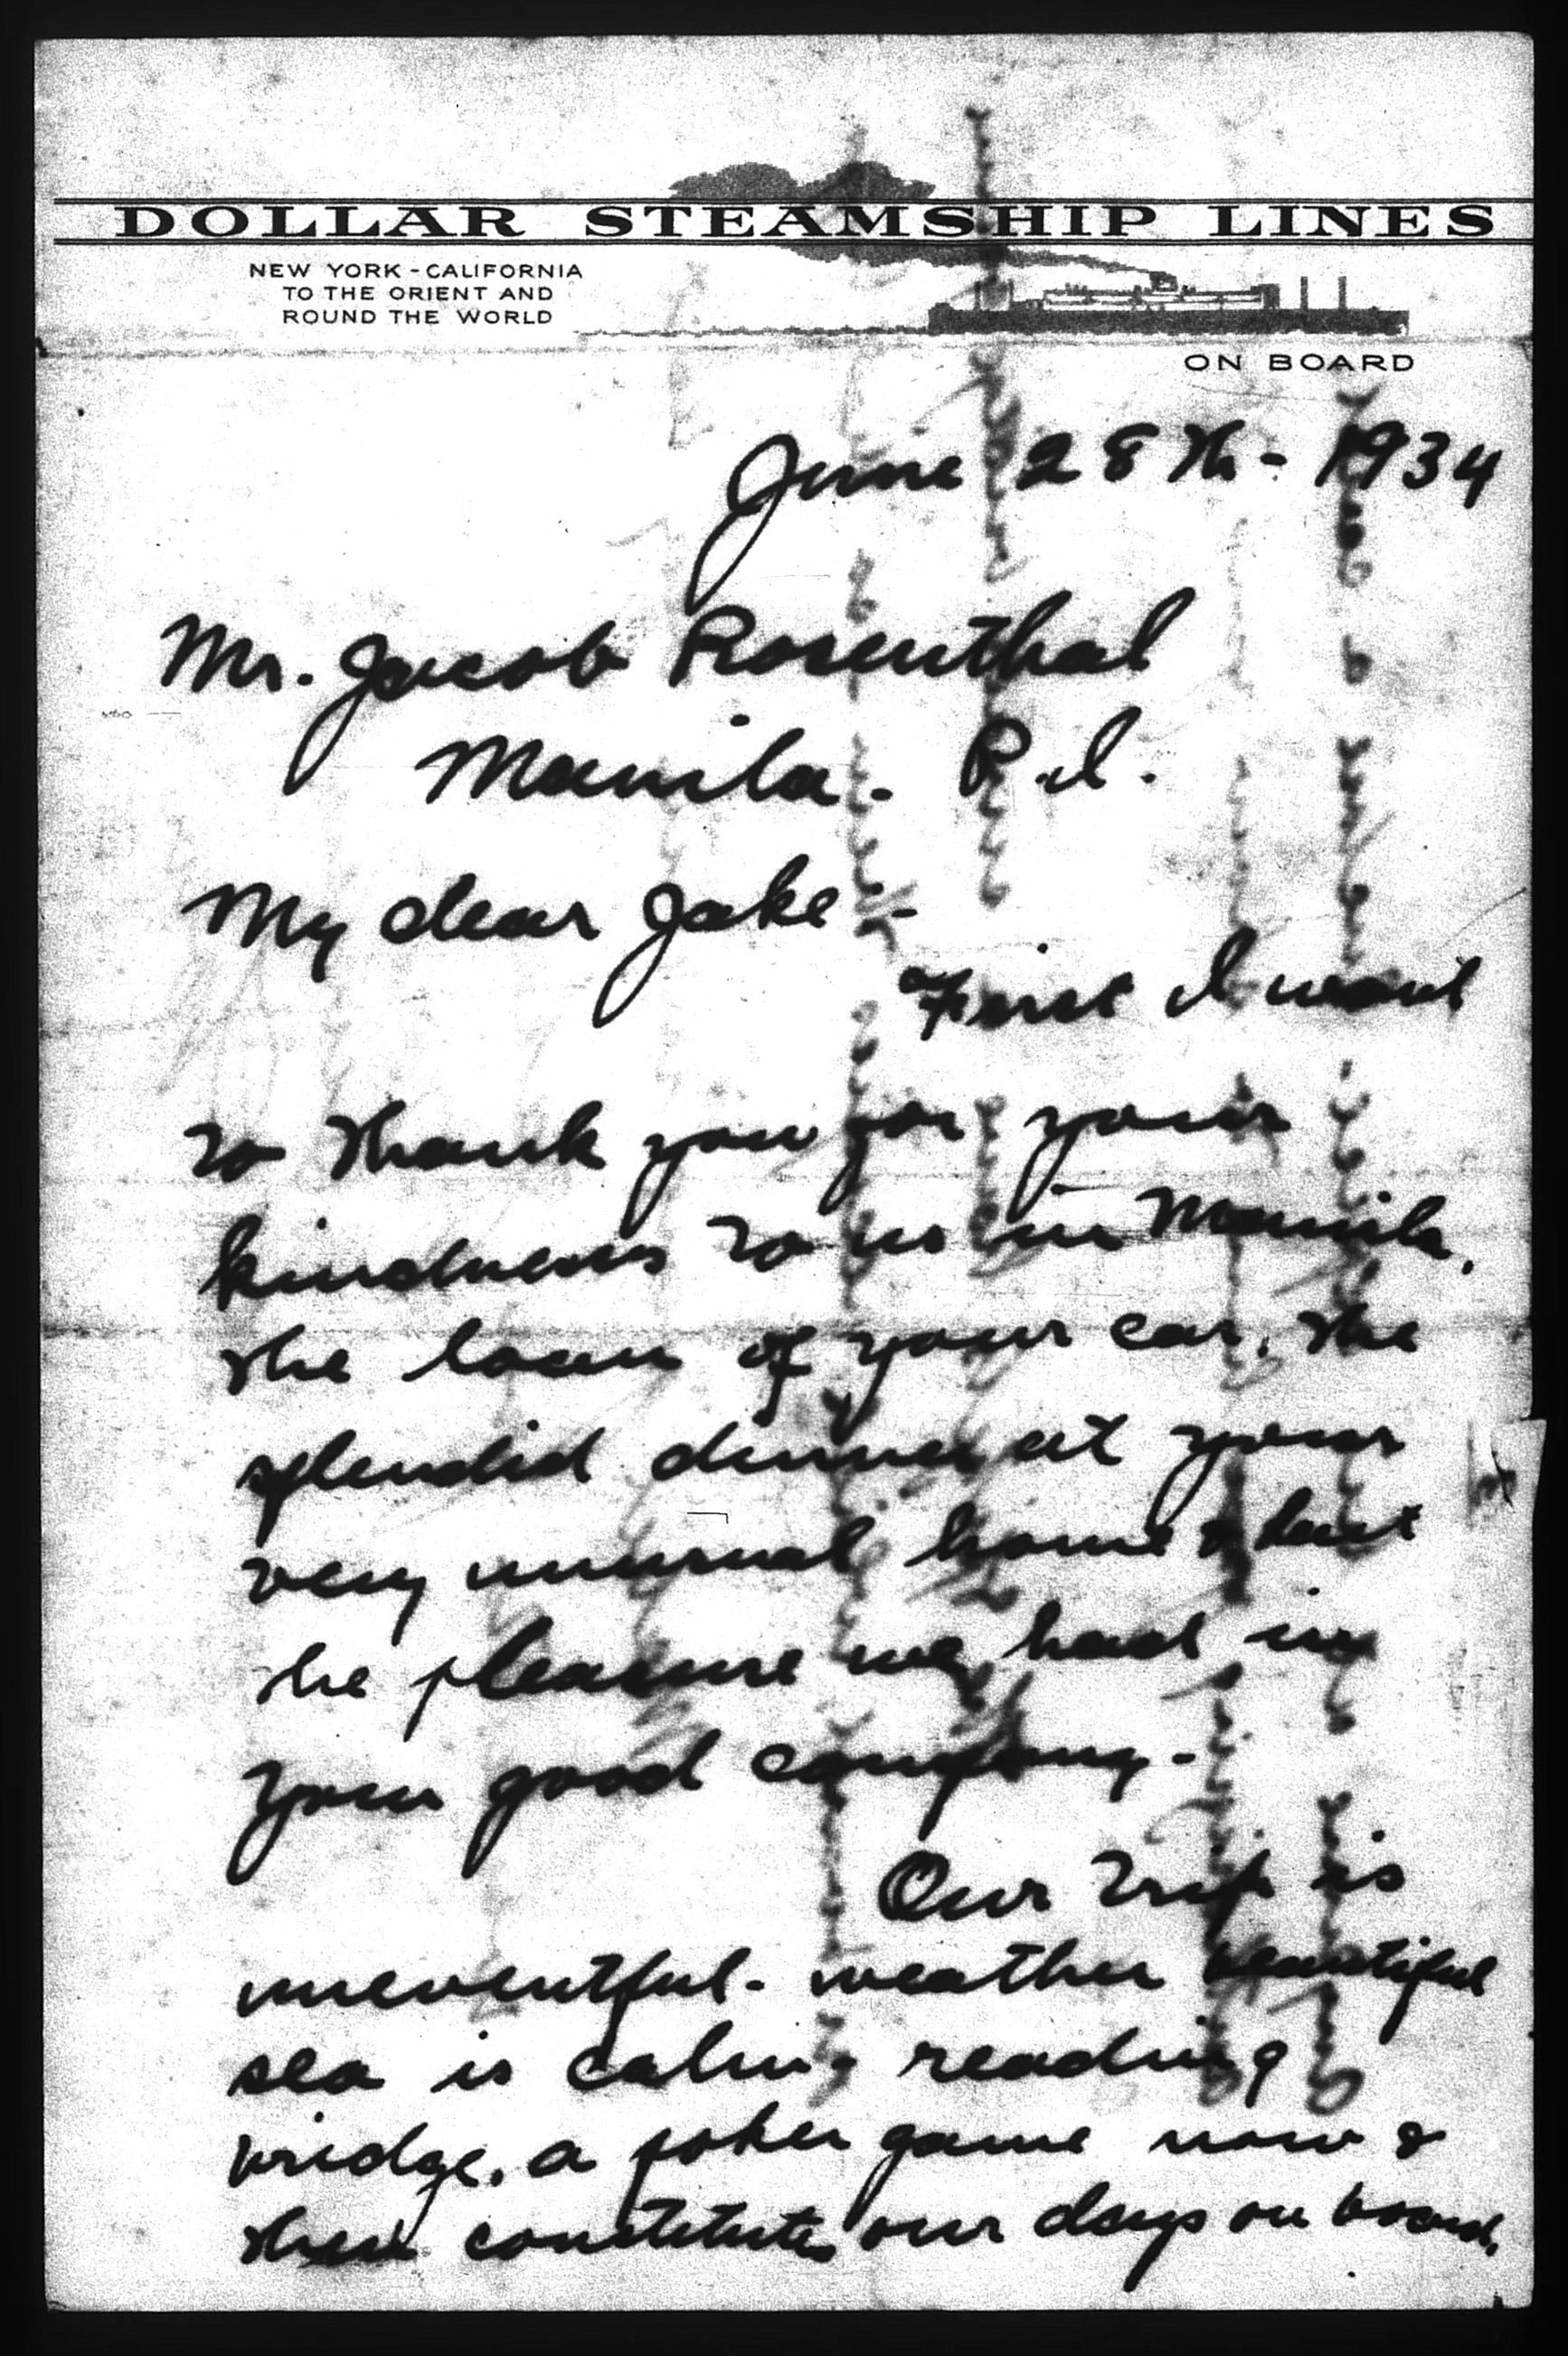 DOLLAR STEAMSHIP LINES
NEW YORK - CALIFORNIA
TO THE ORIENT AND
ROUND THE WORLD
ON BOARD
June 28th - 1934
Mr. Jacob Rosenthal
Manila. P.I.
My dear Jake -
First I want
to thank you for your
kindness to us in Manila.
the loan of your car, the
splendid dinner at your
very unusual home & last
the pleasure we had in
your good company -
Our trip is
uneventful - weather beautiful
sea is calm, reading
bridge, a poker game now &
then constitute our days on board.